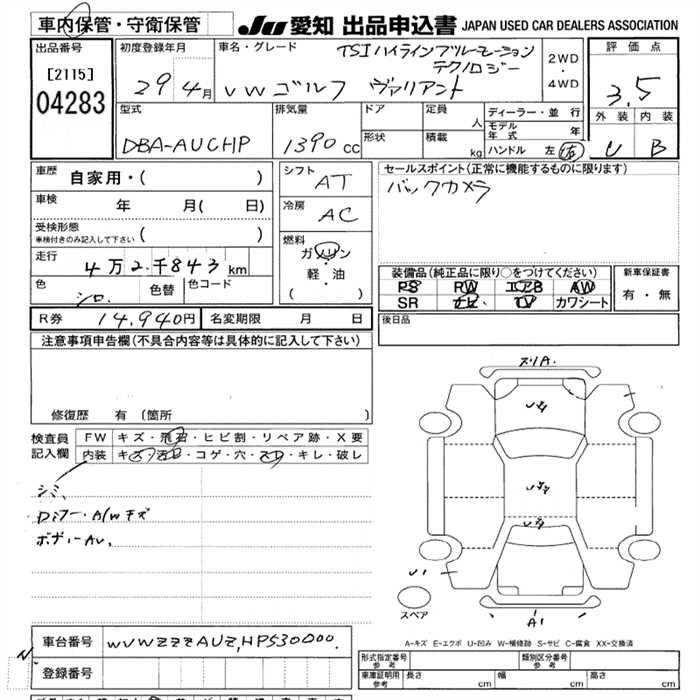 車内保管・守衛保管
JU 愛知 出品申込書 JAPAN USED CAR DEALERS ASSOCIATION
出品番号
[2115]
04283
初度登録年月
29年 4月
車名・グレード
TSIハイラインブルーモーション
テクノロジー
VWゴルフ ヴァリアント
2WD
・
4WD
評価点
3.5
外装 内装
U B
型式
DBA-AUCHP
排気量
1390cc
ドア
形状
定員
人
積載
kg
ディーラー・並行
モデル
年式 年
ハンドル 左・右
車歴
自家用・( )
車検 年 月( 日)
受検形態
車検付きのみ記入して下さい ( )
走行 4万2千843km
色 シロ 色替 色コード
シフト
AT
冷房
AC
燃料
ガソリン
・
軽・油
( )
セールスポイント(正常に機能するものに限ります)
バックカメラ
装備品(純正品に限り〇をつけてください)
PS PW エアB AW
SR ナビ TV カワシート
新車保証書
有・無
R券 14,940円 名変期限 月 日
後日品
注意事項申告欄(不具合内容等は具体的に記入して下さい)
修復歴 有(箇所 )
検査員
記入欄
FW キズ・飛石・ヒビ割・リペア跡・X要
内装 キズ・汚れ・コゲ・穴・スレ・キレ・破レ
シミ
Dミラー・A/Wキズ
ボディーAU.
スリA.
U1
A1
スペア
A-キズ E-エクボ U-凹み W-補修跡 S-サビ C-腐食 XX-交換済
車台番号 WVWZZZAUZHP530000.
登録番号
形式指定番号
参考
類別区分番号
参考
車庫証明用
参考
長さ cm 幅 cm 高さ cm